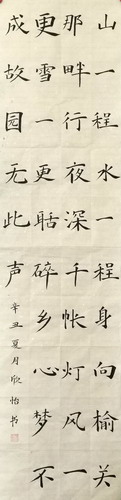 山一程水一程身向榆关
那畔行夜深千帐灯风一
更雪一更聒碎乡心梦不
成故园无此声
辛丑夏月欣怡书